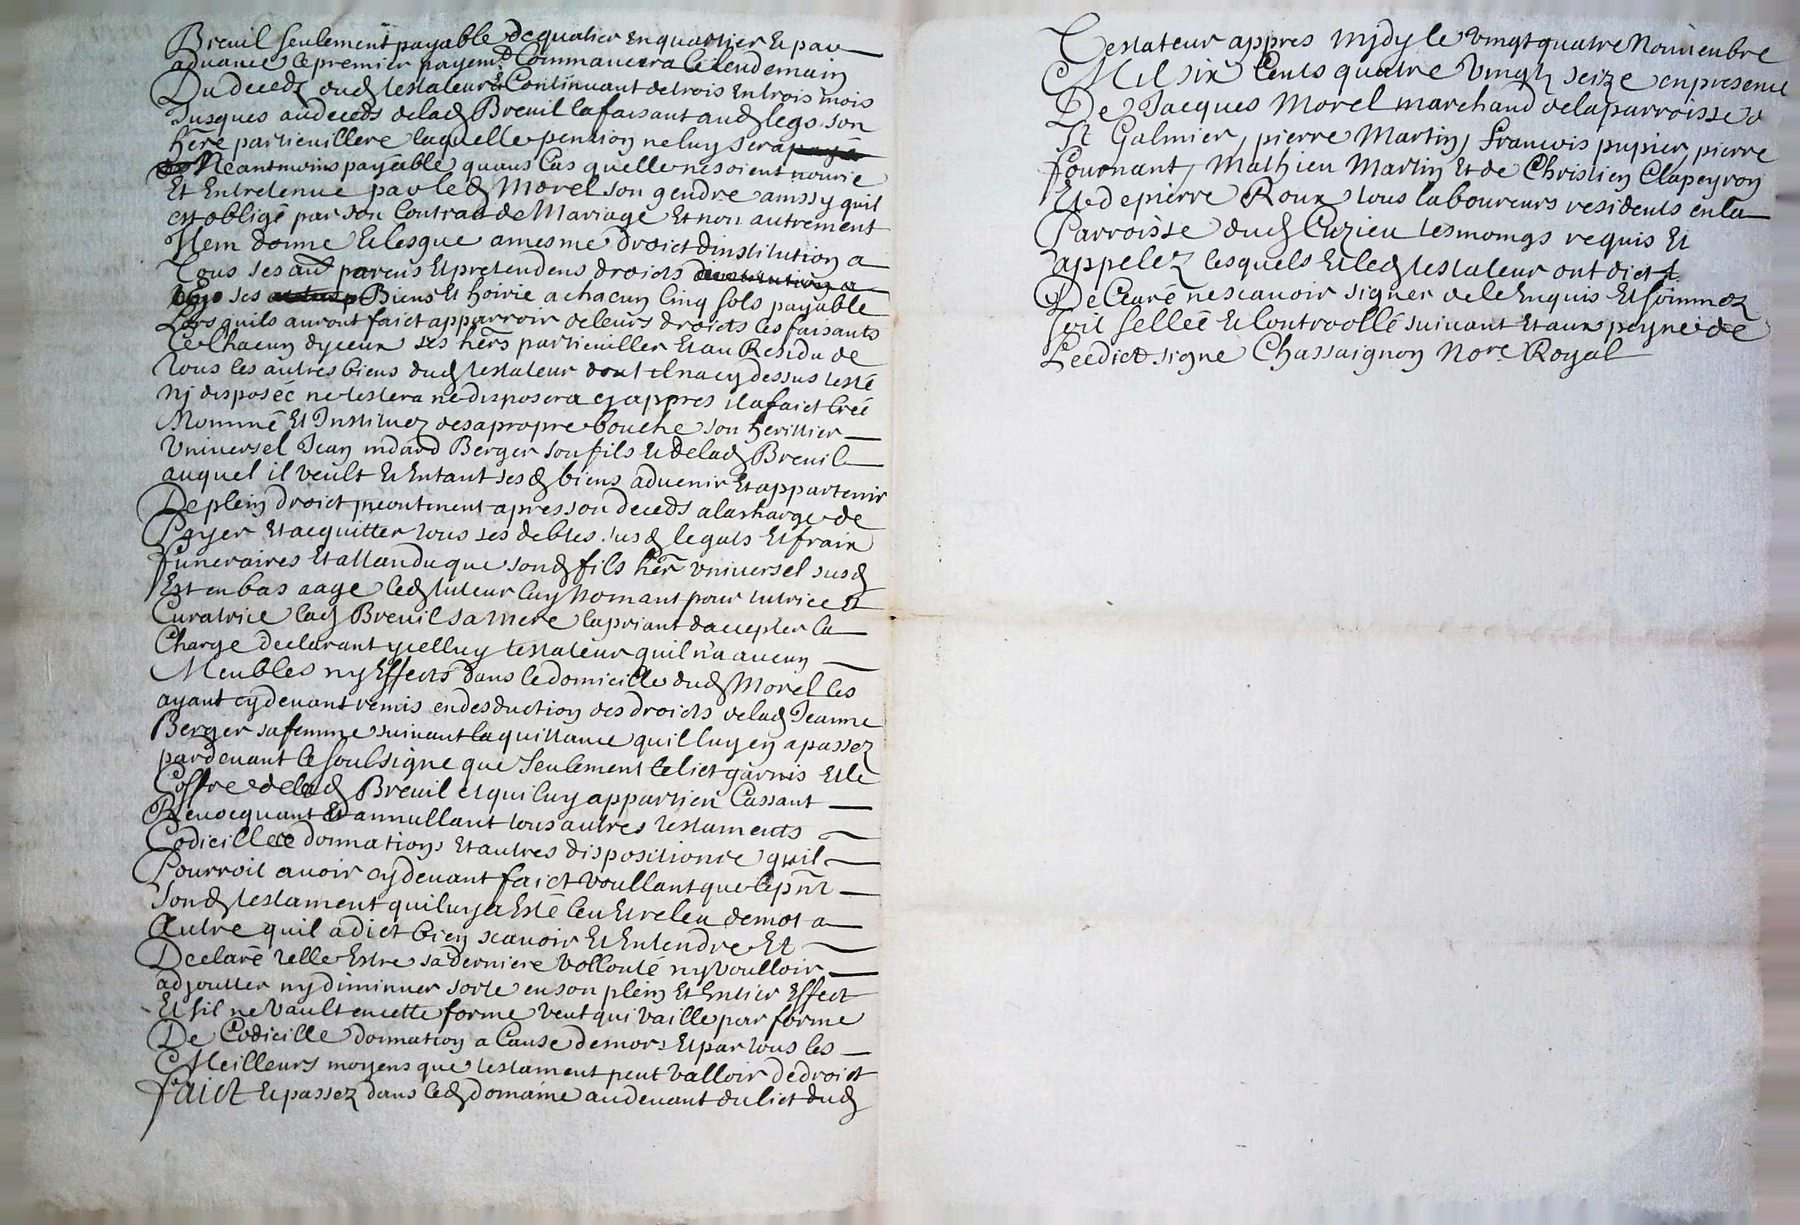 Breuil seulement payable de quatier en quartier et par
advance le premier payemt commancera le lendemain
Du deceds dud testateur et Continuant de trois en trois mois
Jusques au deceds de lad Breuil la faisant aud legs son
here particuillere laquelle pention ne luy sera
Neantmoins payable quaus cas quelle ne soient nourie
Et Entretenue par led Morel son gendre ainssy quil
est obligé par son Contract de Mariage Et non autrement
Item donne Et lesgue a mesme droict dinstitution a
Tous ses aut parens Et pretendens droicts dinstitution a
ses Biens Et hoirie a chacun Cinq sols payable
Lors quils auront faict apparroir de leurs droicts les faisants
Et Chacun dyceux ses hers particuiller Et au Residu de
tous les autres biens dud testateur dont il na cy dessus testé
ny disposéé ne testera ne disposera cy appres il a faict créé
Nommé Et Instituez de sa propre bouche son herittier
Universel Jean mdard Berger son fils Et de lad Breuil
auquel il veult Et Entant ses d biens advenir Et appartenir
De plein droict incontinent apres son deceds a la charge de
Payer Et acquitter tous ses debtes susd legats Et fraix
funeraires Et attandu que sond fils her universel susd
Est en bas aage led tuteur luy Nomant pour tutrice Et
Curatrice lad Breuil sa mere la priant daccepter la
Charge declarant ycelluy testateur quil n'a aucun
Meubles ny Effects dans le domicille dud Morel les
ayant cy devant remis en desduction des droicts de lad Jeanne
Berger sa femme suivant la quittance quil luy en a passez
pardevant le soubsigne que seulement le lict garnis Et le
Coffre de lad Breuil et qui luy appartien Cassant
Revocquant Et annullant tous autres testaments
Codicilles donnations Et autres dispositions quil
Pourroit avoir cy devant faict voullant que le pnt
sond testament qui luy a Esté leu Et releu de mot a
Autre quil a dict bien scavoir Et Entendre Et
Declaré telle Estre sa derniere vollonté ny voulloir
adjoutter ny diminuer sorte en son plein Et Entier Effect
Et sil ne vault en cette forme veut qui vaille par forme
De Codicille donnation a Cause de mors Et par tous les
Meilleurs moyens que testament peut valloir de droict
faict Et passez dans led domaine au devant du lict dud
Testateur appres mydy le vingt quatre Novienbre
Mil six Cents quatre vingts seize en presence
De Jacques Morel marchand de la parroisse d
St Galmier, pierre Martin, francois pupier, pierre
fournant, Mathieu Martin Et de Christien Clapeyron
Et de pierre Roux tous laboureurs residents en la
Parroisse dud Cuzieu tesmoings requis Et
appelez lesquels Et led testateur ont dict Et
Declaré ne scavoir signer de le Enquis Et Sommez
soit sellée Et Controollé suivant Et aux peyne de
Leedict signe Chassaignon Nore Royal